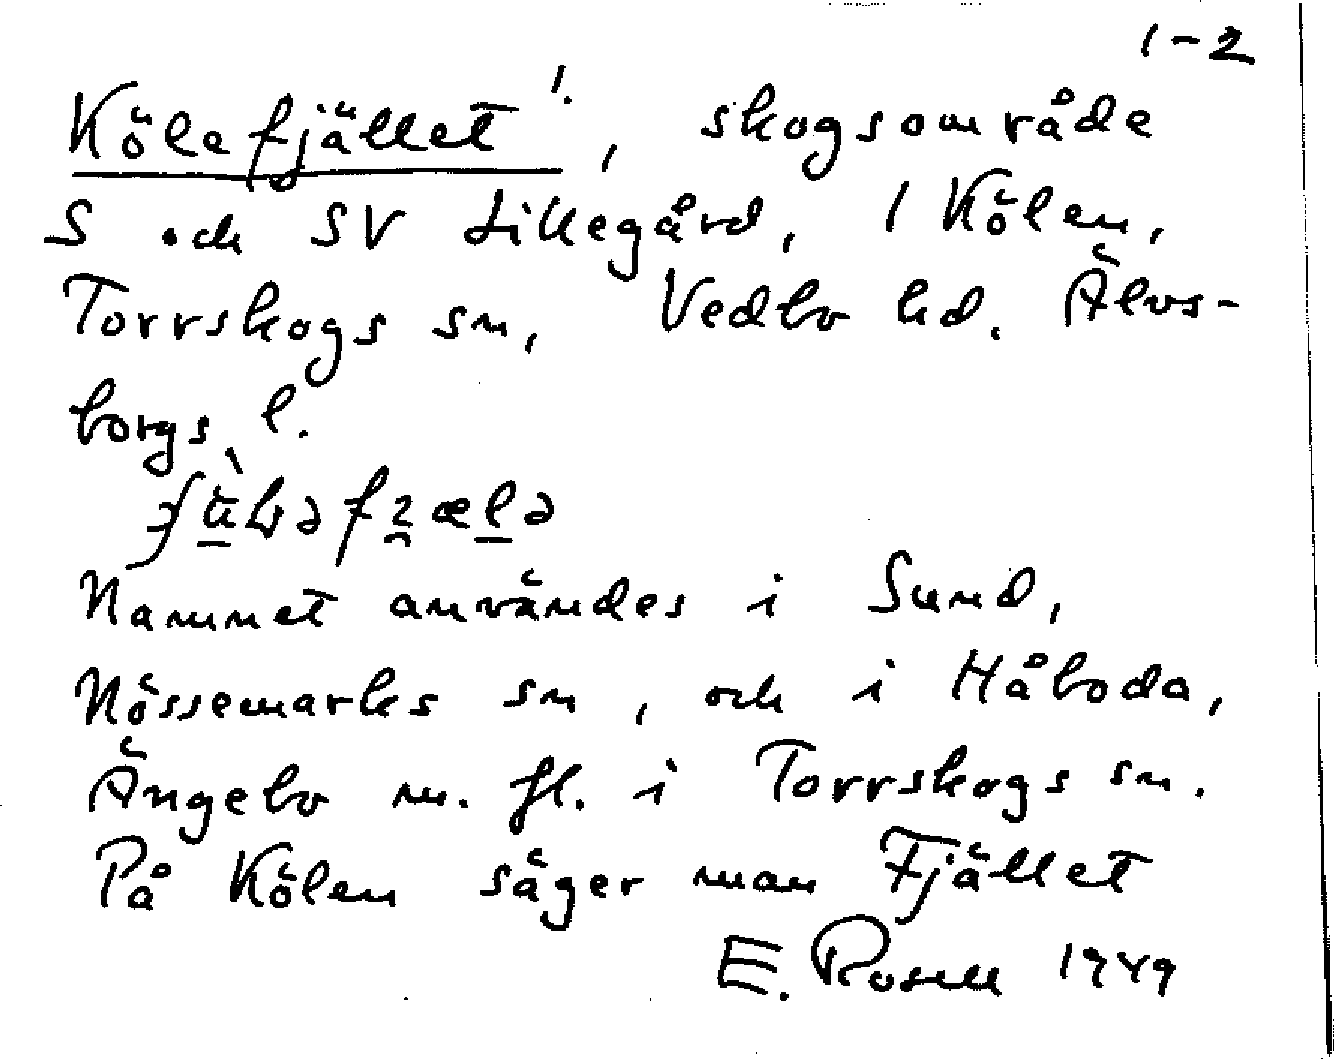 1-2
Kölefjället !., skogsområde
S och SV Lillegård, 1 Kölen,
Torrskogs sn, Vedbo hd. Älvs-
borgs l.
Namnet användes i Sund,
Nössemarks sn, och i Håboda,
Ängebo m. fl. i Torrskogs sn.
På Kölen säger man Fjället
E. Rosell 1949